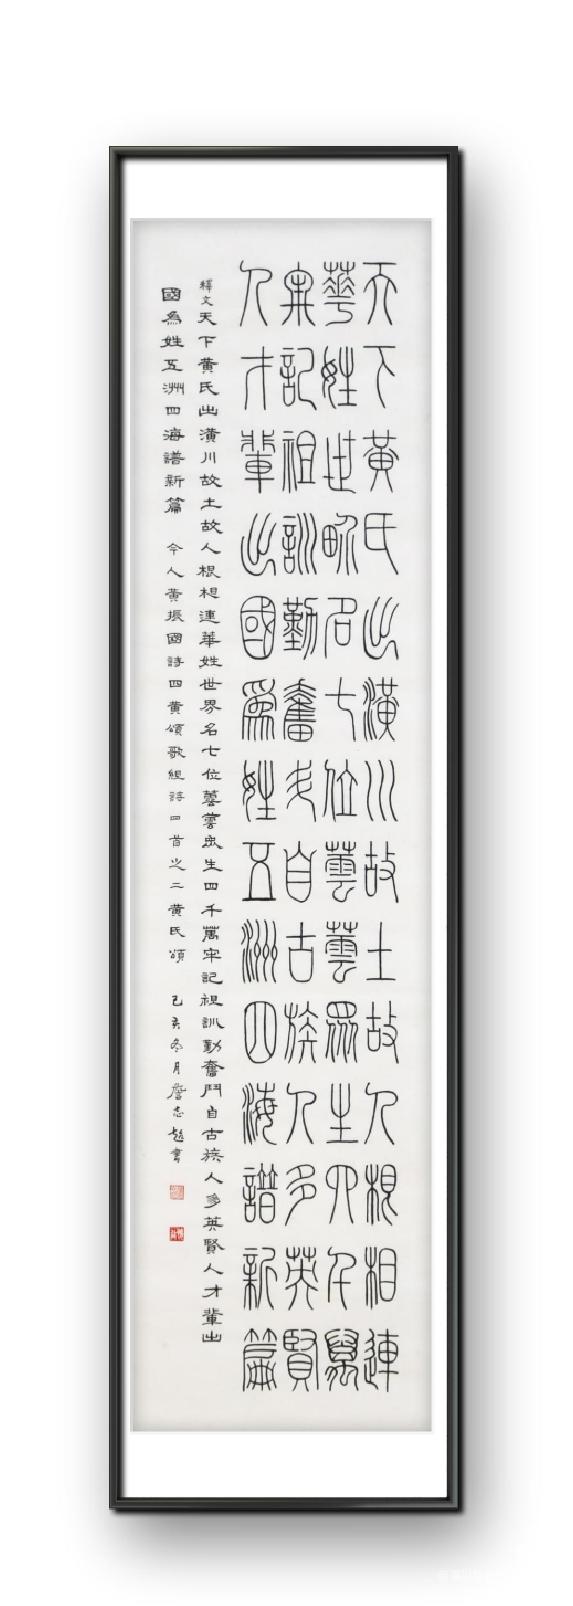 天下黃氏出潢川故土故人根相連
華姓世畍名七位蕓蕓眾生四千萬
牢記祖訓勤奮鬥自古族人多英賢
人才輩出國爲姓五洲四海譜新篇
釋文天下黃氏出潢川故土故人根相連華姓世界名七位蕓蕓眾生四千萬牢記祖訓勤奮鬥自古族人多英賢人才輩出
國為姓五洲四海譜新篇 今人黃振國詩四黃頌歌組詩四首之二黃氏頌 己亥冬月詹志超書